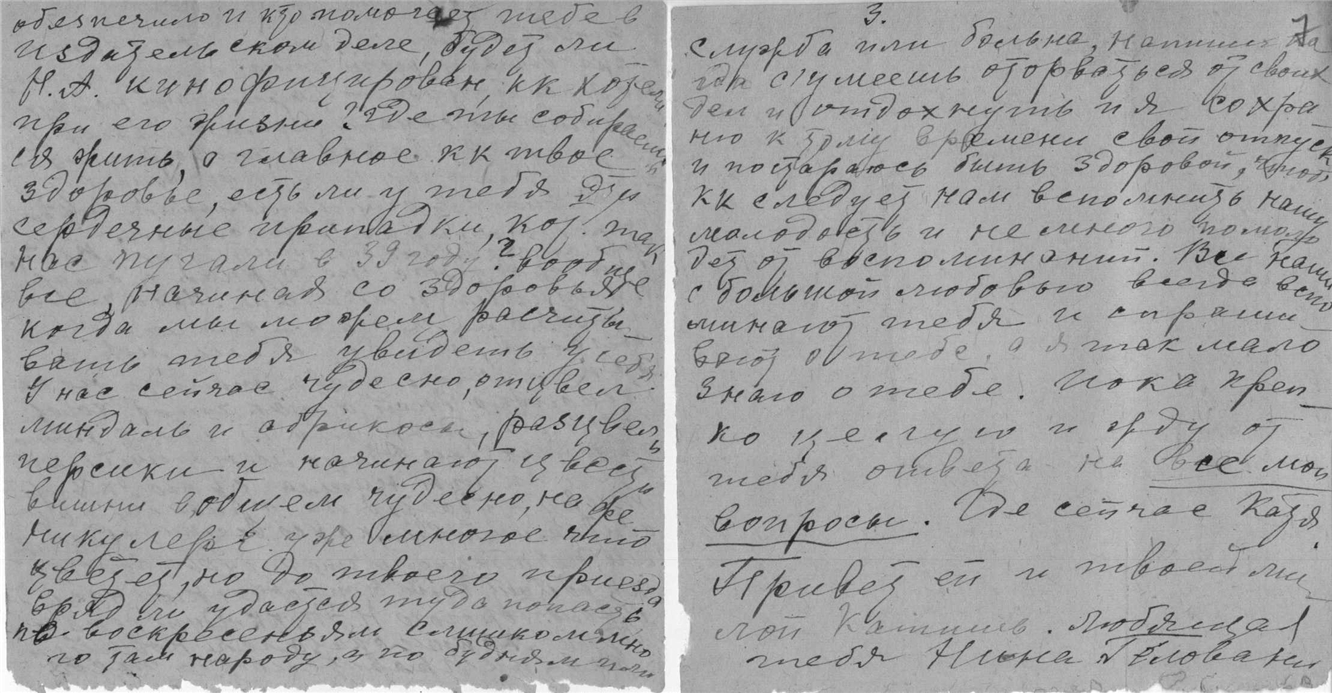 обезпечило и кто помогает тебе в
издательском деле, будет ли
Н.А. кинофицирован, кк хотели
при его жизни? Где ты собираешь
ся жить, а главное кк твое
здоровье, есть ли у тебя эти
сердечные припадки, кот. так
нас пугали в 39 году? вообще
все, начиная со здоровья и
когда мы можем расчиты
вать тебя увидеть у себя.
У нас сейчас чудесно, отцвел
миндаль и абрикосы, расцвели
персики и начинают цвести
вишни вобщем чудесно, на фе
никулере уже многое что
цветет, но до твоего приезда
вряд ли удастся туда попасть
по воскресеньям слишком мно
го там народу, а по будням или
3.
7
служба или больна, напиши ко
гда сумеешь оторваться от своих
дел и отдохнуть и я сохра
ню к тому времени свой отпуск
и постараюсь быть здоровой, чтоб
кк следует нам вспомнить нашу
молодость и немного помоло
деть от воспоминаний. Все наши
с большой любовью всегда вспо
минают тебя и спраши
вают о тебе, а я так мало
знаю о тебе. Пока креп
ко целую и жду от
тебя ответа на все мои
вопросы. Где сейчас Катя
Привет ей и твоей ми
лой Катишь. Любящая
тебя Нина Геловани